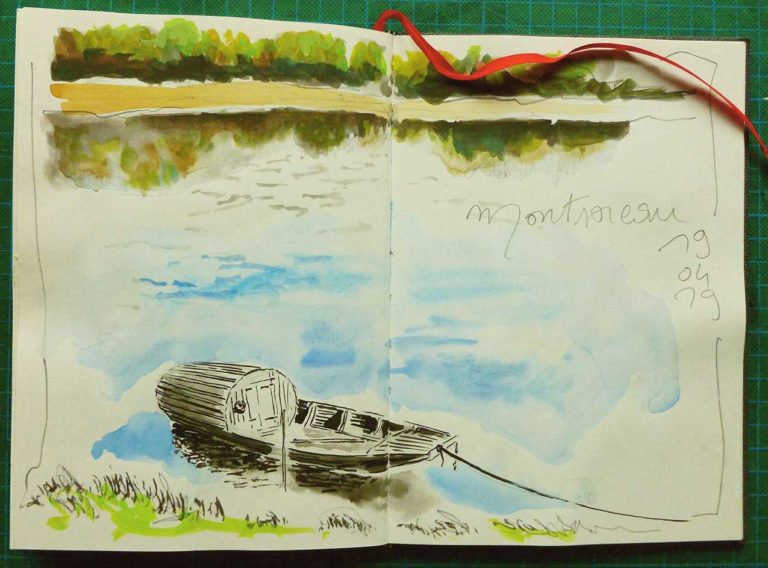 Montsoreau
19
04
19